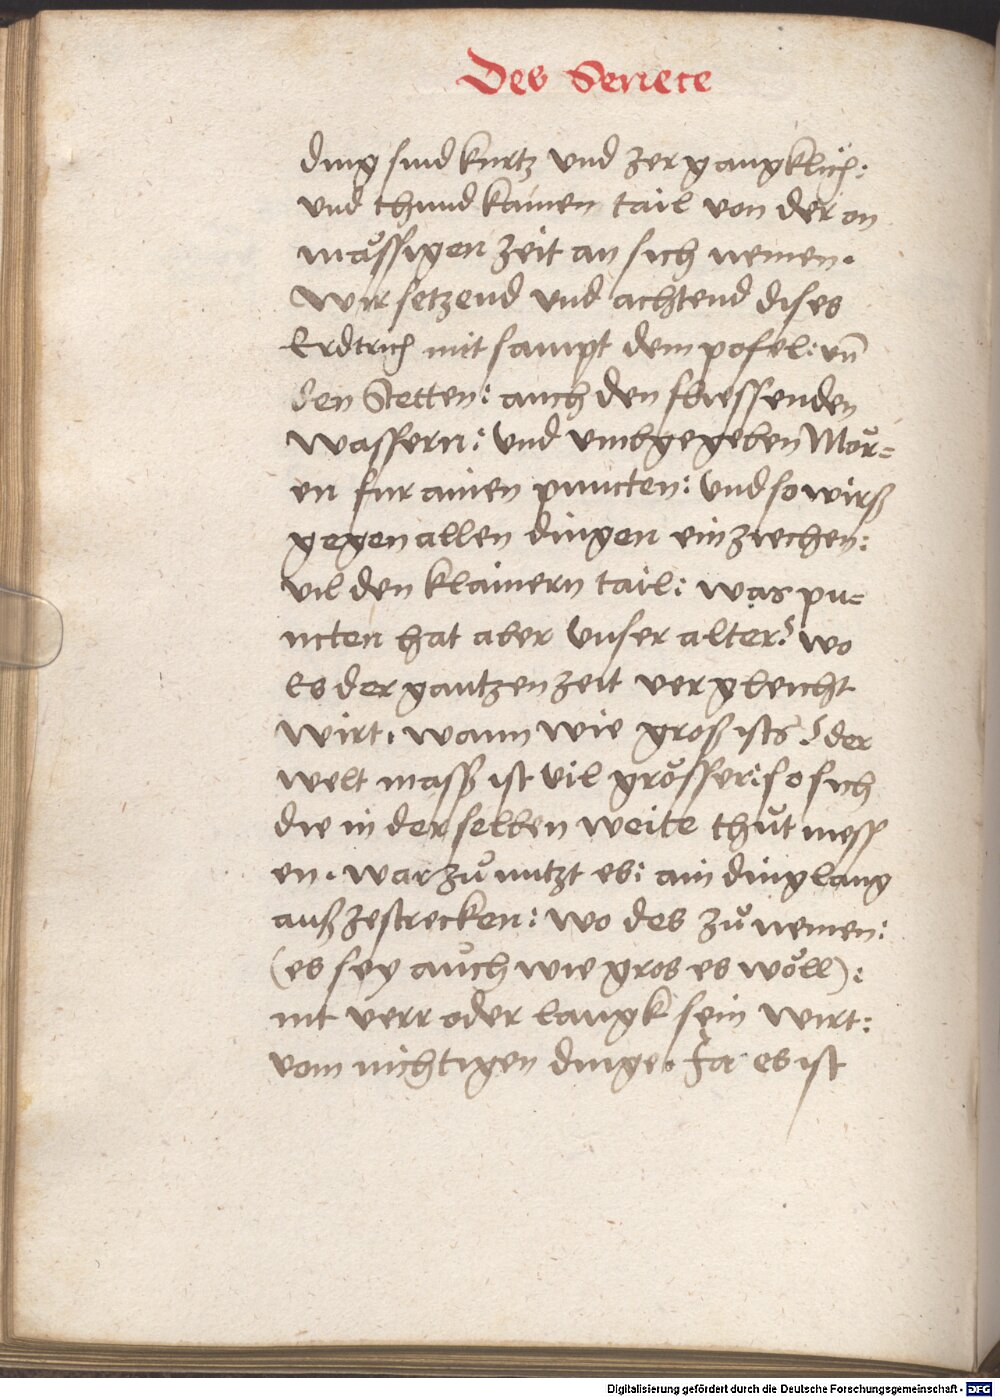 Des Senece
ding sind kurtz vnd zergangklich:
vnd thund kainen tail von der on
mässigen zeit an sich nemen.
Wir setzend vnd achtend dises
Erdtrich mit sampt dem pofel: vn̄
den Stetten: auch den fliessenden
wassern: vnd vmbgegeben Mör=
en fur ainen puncten: vnd so wirß
gegen allen dingen ein ziechen:
vil den klainern tail: was pu=
ncten hat aber vnser alter? wo
Es der gantzen zeit vergleicht
wirt. wann wie groß ists? der
welt mass ist vil grösser: so sich
die in derselben weite thůt mess
en. war zů nutzt es: ain ding lang
auß zestrecken: wo des zů nemen:
(es sey auch wie gros es wöll):
nit verr oder langk sein wirt:
vom nichtigen dinge. Ja es ist
Digitalisierung gefördert durch die Deutsche Forschungsgemeinschaft - DFG